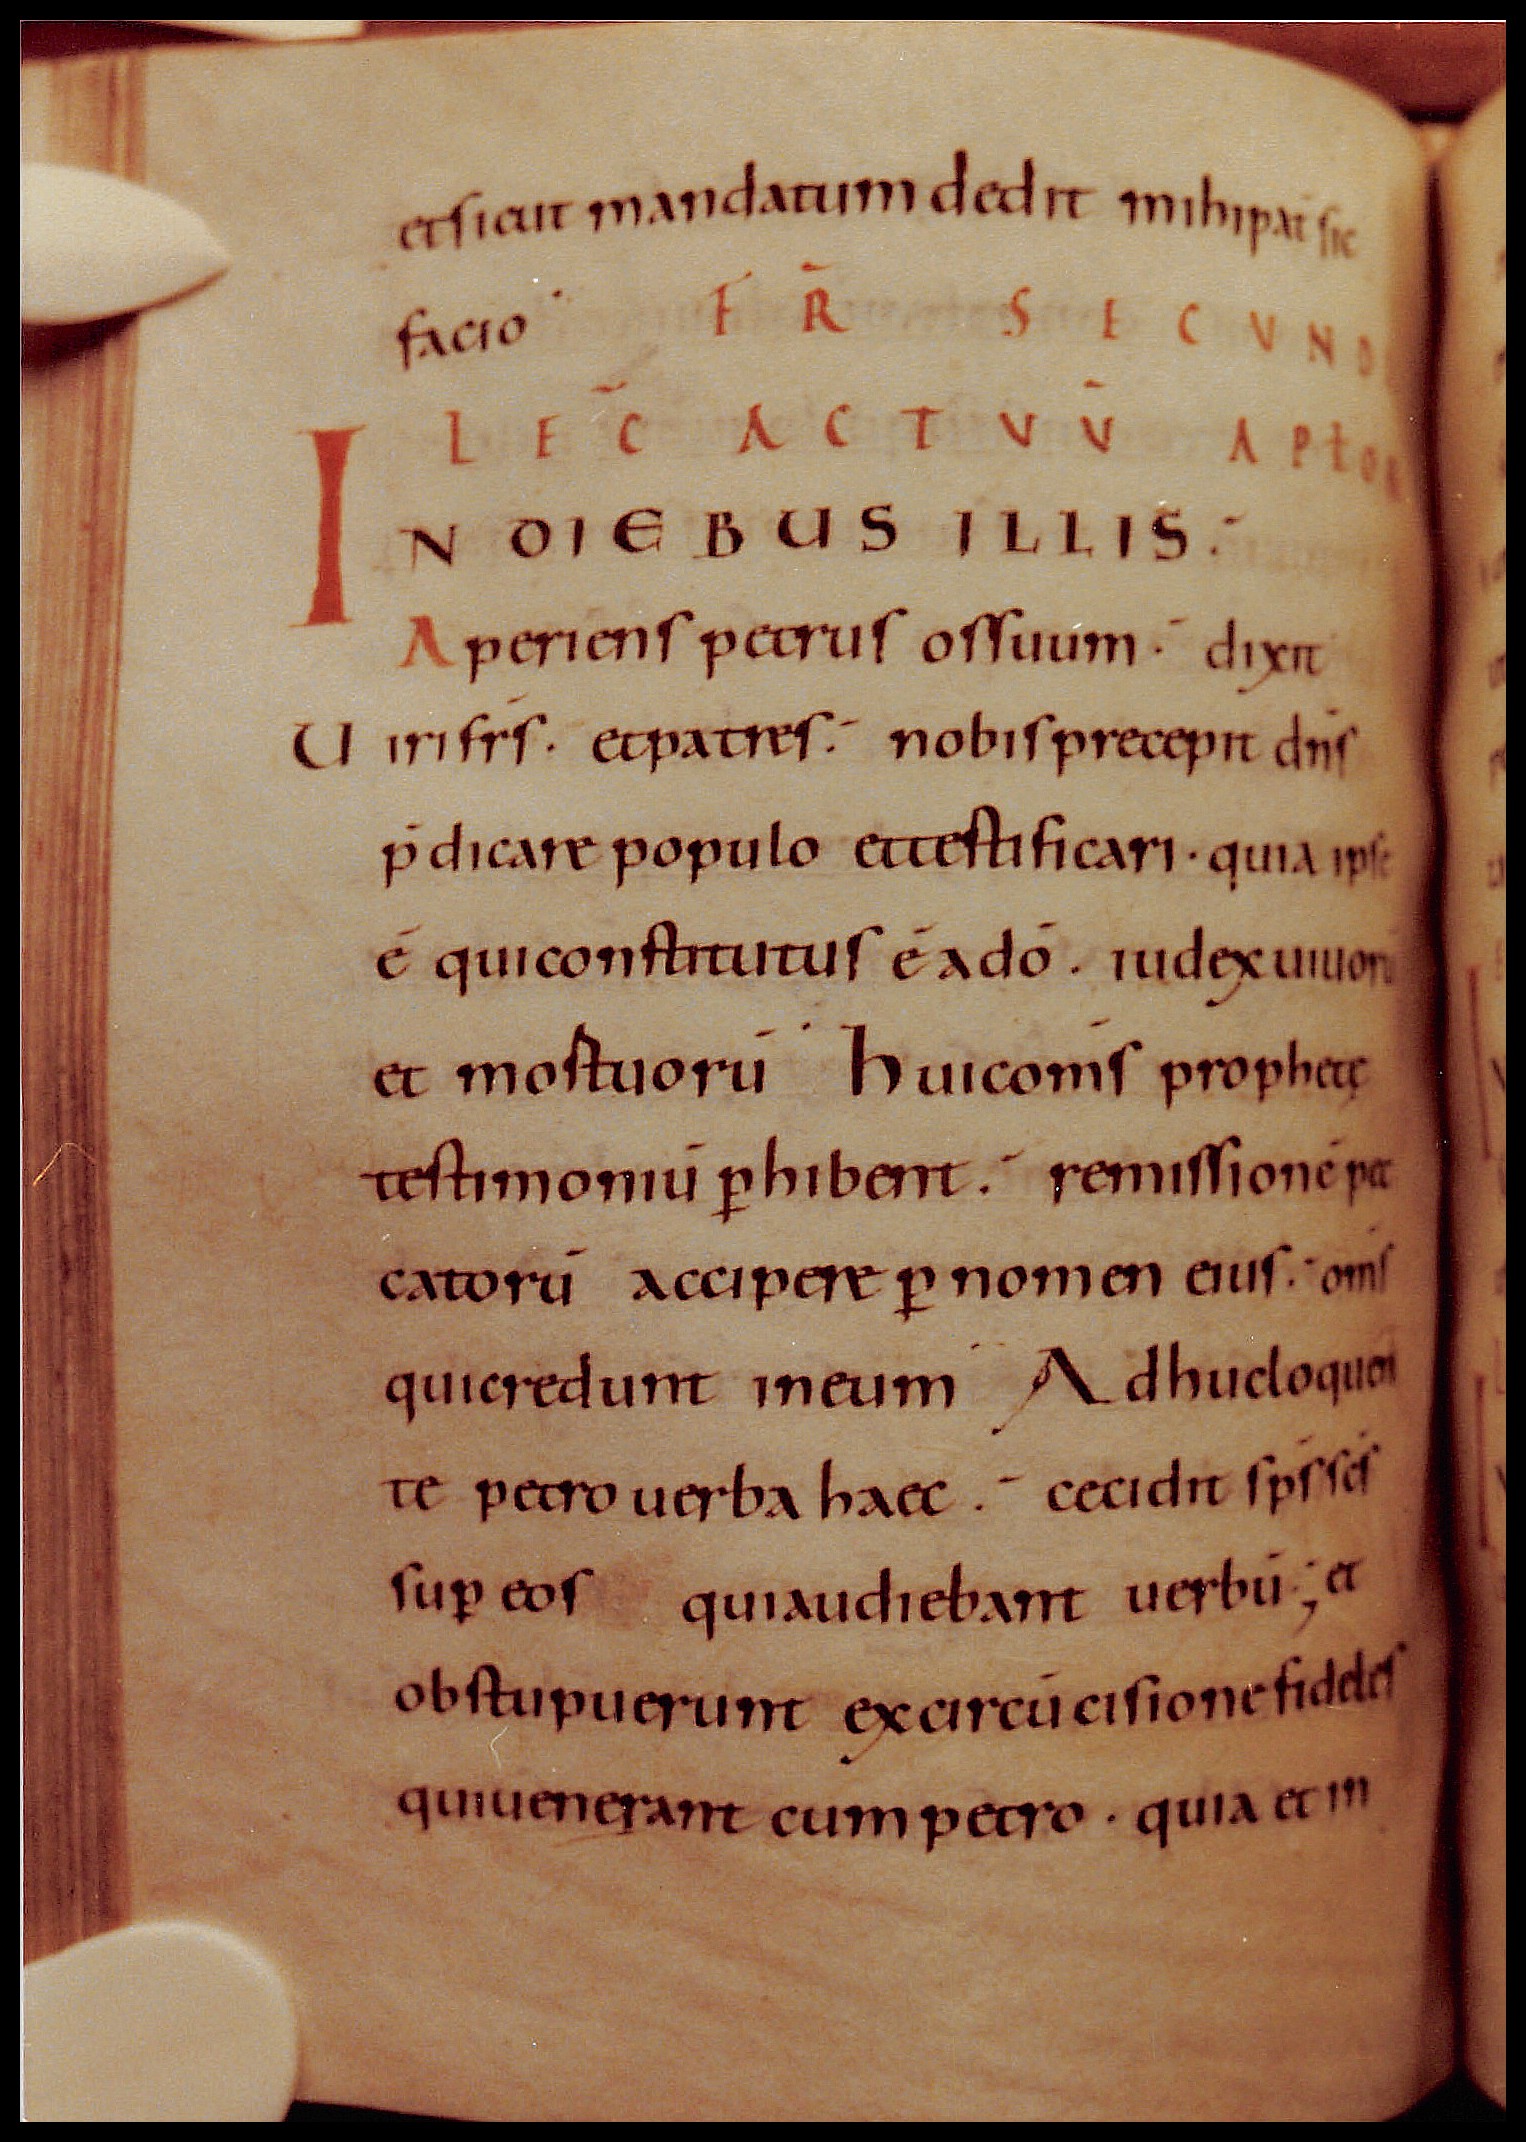 et sicut mandatum dedit mihi pat̄ sic
facio FR̄ SECUND
LEC̄ ACTUŪ APŁOR
IN DIEBUS ILLIS.
Aperiens petrus os suum. dixit
Uiri fr̄s. et patres. nobis precepit dn̄s
p̄dicare populo et testificari. quia ipse
ē qui constitutus ē a dō. iudex uiuorū
et mostuorū Huic om̄s prophetę
testimoniū ꝑhibent. remissionē pec
catorū accipere ꝑ nomen eius. om̄s
qui credunt in eum Adhuc loquen
te petro uerba haec. cecidit sp̄s sc̄s
suꝑ eos qui audiebant uerbū; et
obstupuerunt ex circū cisione fideles
qui uenerant cum petro. quia et in